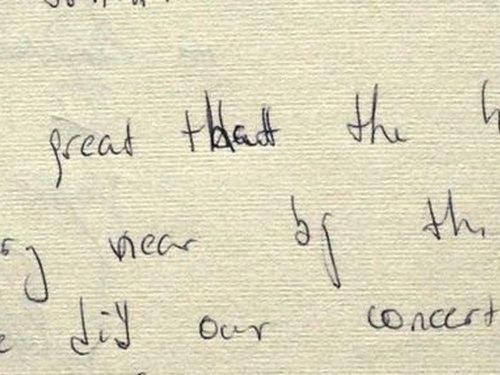 great that the h
ry near by th
e did our concert